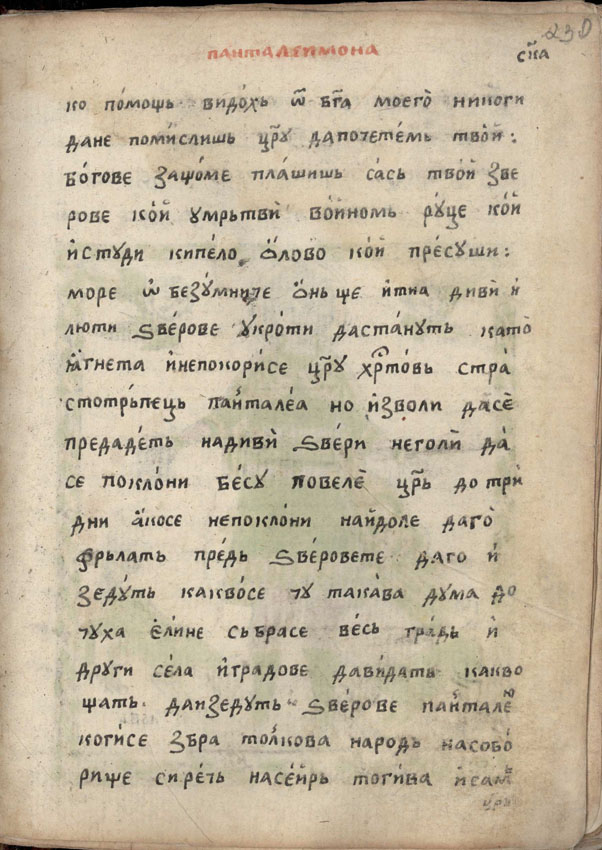 230
панталеимона
ска
ко по́мощь видо́хь ѿ бг҃а моего̀ никоги
дане поми́слишь цр҃ꙋ дапочете́мь твоѝ :
бо́гове защо́ме пла́шишь са́сь твоѝ зве
рове ко́й умрьтвѝ во́йномь рꙋ́це ко́й
и́студи кипе́ло ѻ́лово ко́й пре́суши :
море ѿ безꙋ́мниче ѻ́нь ще и́тиа дивѝ и
лю́ти ѕве́рове укро́ти даста́нуть като̀
ꙗ́гнета и́непокори́се цр҃ꙋ хрⷭто́вь стра̀
стотрь́пець па́нталеа но и́зволи дасѐ
предаде́ть надивѝ ѕве́ри неголѝ да̀
се покло́ни бе́су повелѐ цр҃ь до трѝ
дни а́косе непокло́ни найдоле даго̀
фрь́лать пре́дь ѕве́ровете даго ѝ
зеду́ть какво́се чу така́ва дума до
чуха е́лине сьбрасе ве́сь гра́дь ѝ
други се́ла и́градове дави́дать какво
щать даизедуть ѕве́рове панталеѡⷩ
коги́се збра то́лкова народь насобо́
рище сире́чь насе́йрь тоги́ва и́самь
цр҃ь